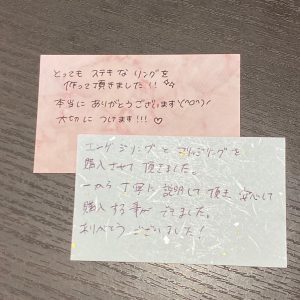 とっても ステキな リングを
作って頂きました!!
本当に ありがとうございます(^o^)/
大切に つけます!!! ♡
エンゲージリングと マリッジリングを
購入させて 頂きました。
一から 丁寧に 説明して 頂き 安心して
購入する事が できました。
ありがとう ございました!